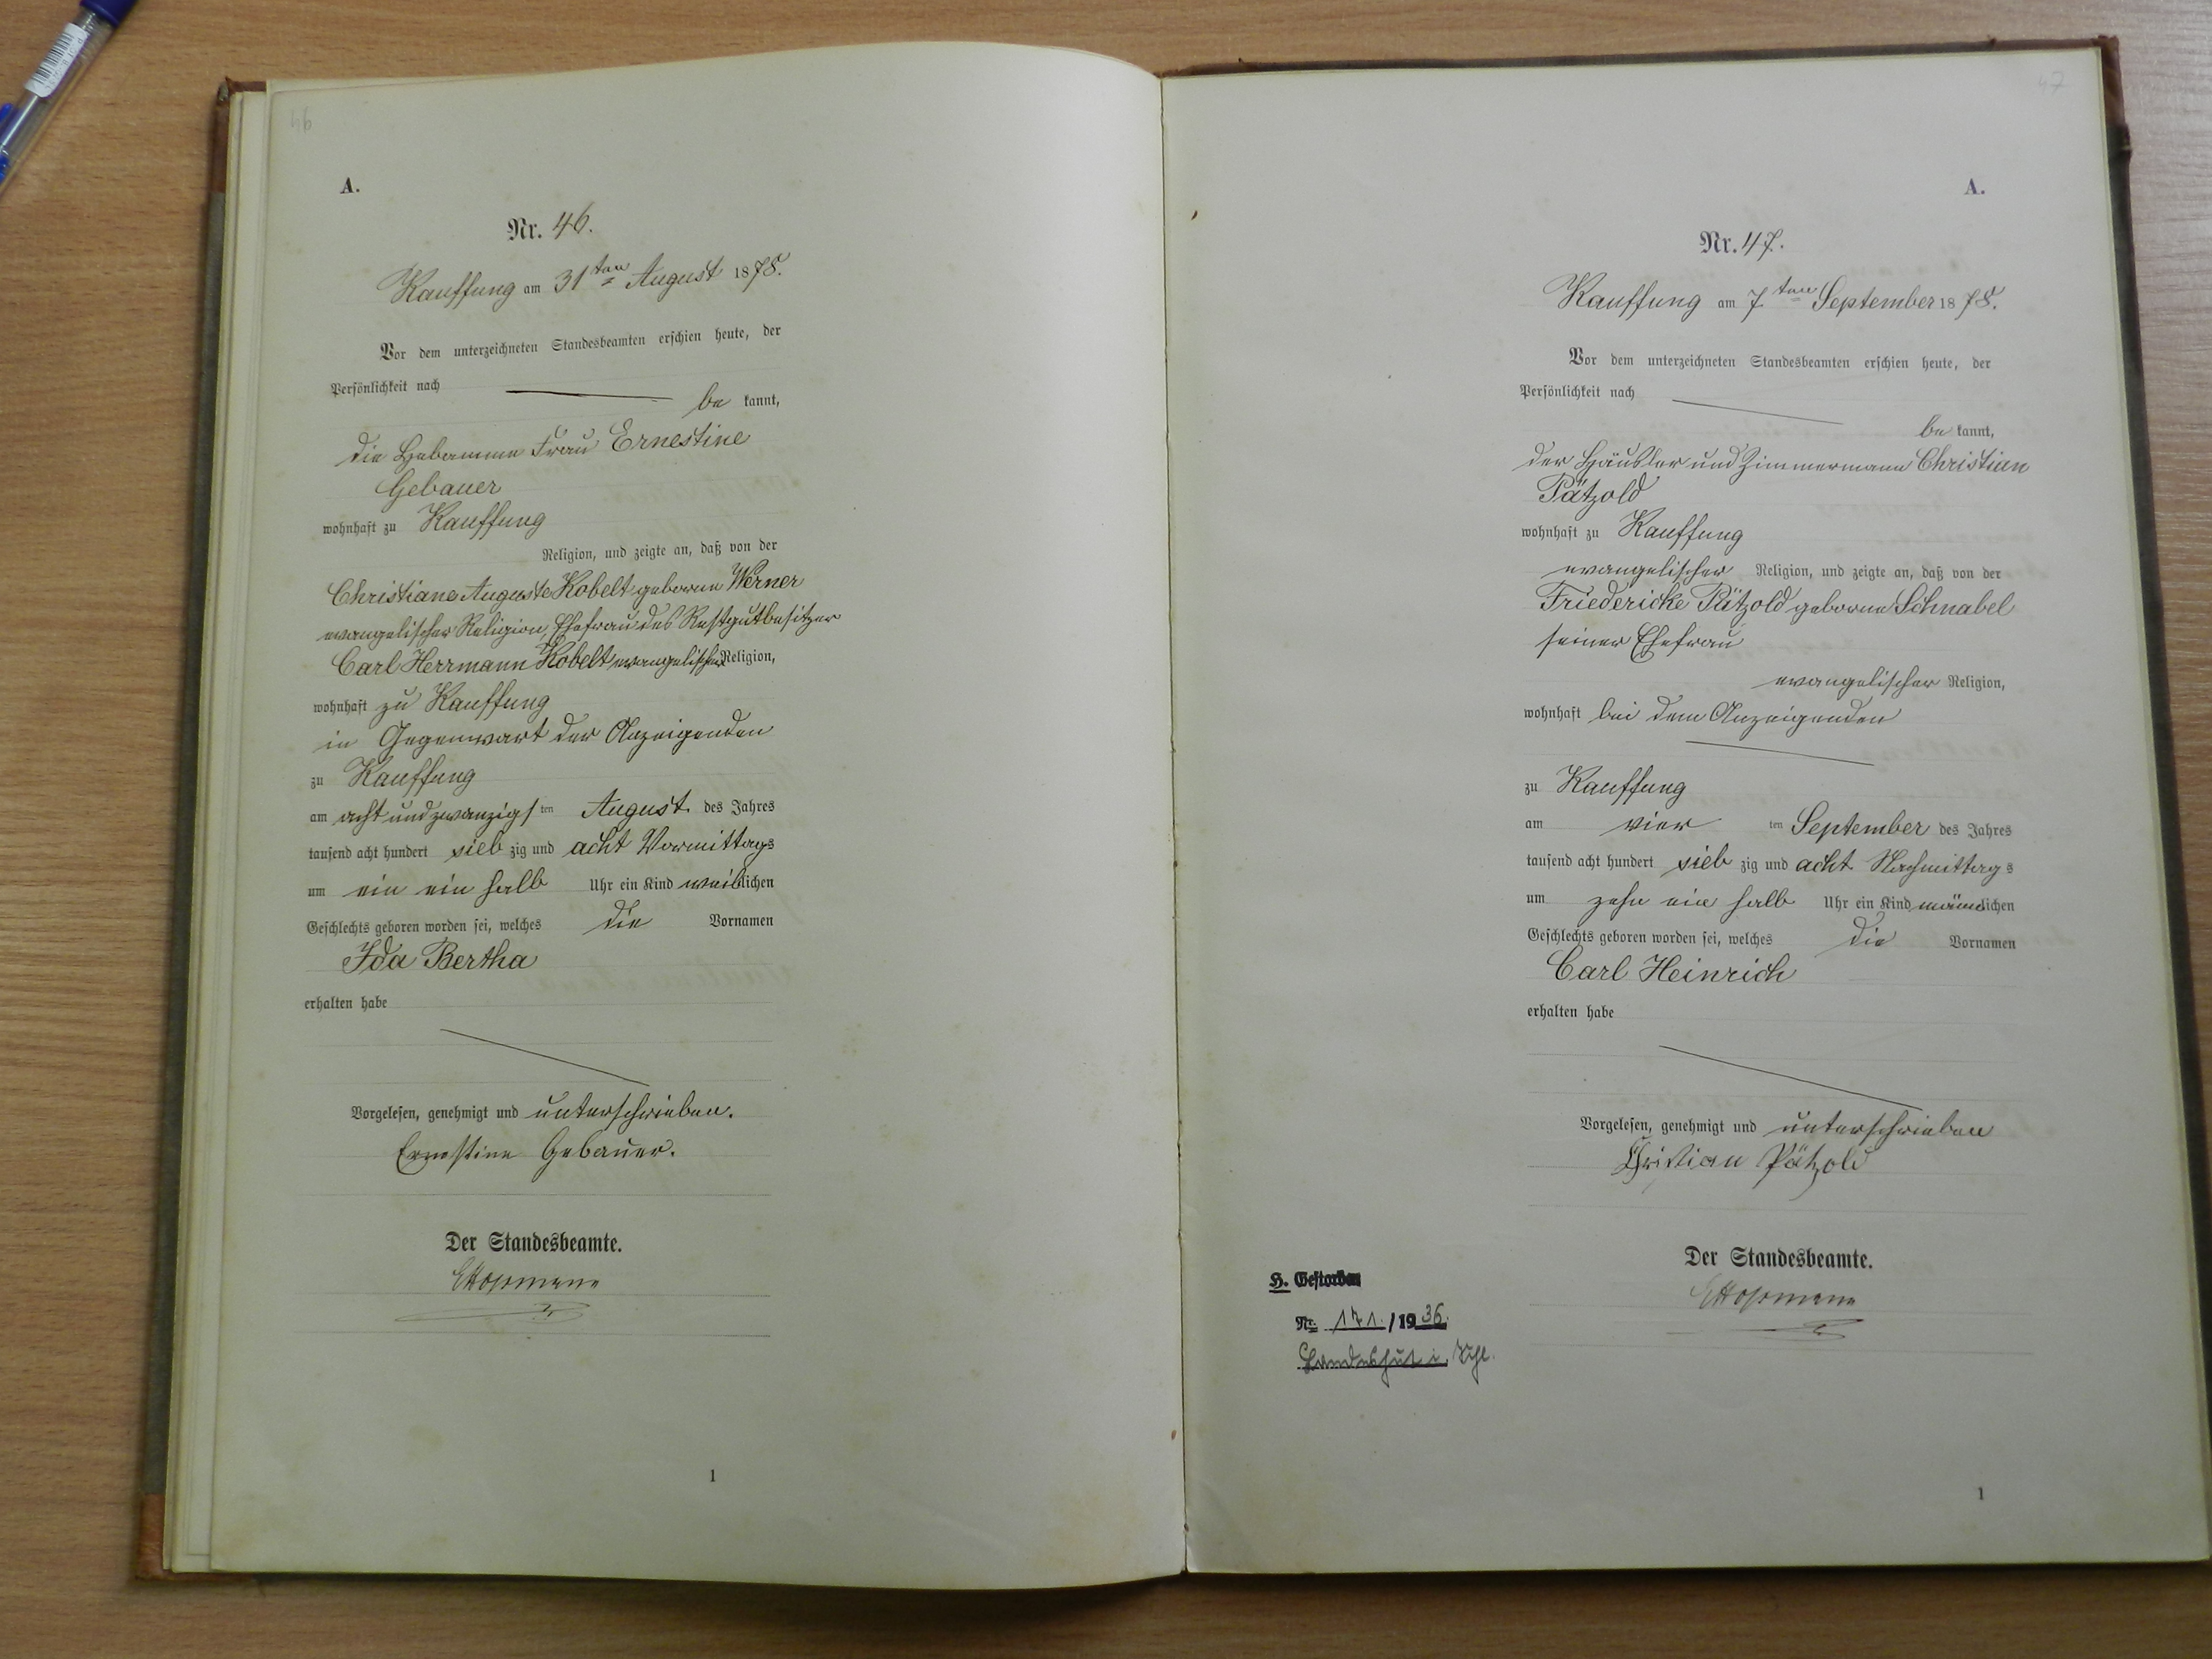 46
A.
Nr. 46.
Kauffung am 31ten August 1878.
Vor dem unterzeichneten Standesbeamten erschien heute, der
Persönlichkeit nach
be kannt,
die Hebamme Frau Ernestine
Gebauer
wohnhaft zu Kauffung
Religion, und zeigte an, daß von der
Christiane Auguste Kobelt geborne Werner
evangelischer Religion, Ehefrau des Restgutbesitzer
Carl Herrmann Kobelt evangelischer Religion,
wohnhaft zu Kauffung
in Gegenwart der Anzeigenden
zu Kauffung
am acht und zwanzigsten August des Jahres
tausend acht hundert sieb zig und acht Vormittags
um ein ein halb Uhr ein Kind weiblichen
Geschlechts geboren worden sei, welches die Vornamen
Ida Bertha
erhalten habe
Vorgelesen, genehmigt und unterschrieben.
Ernestine Gebauer.
Der Standesbeamte.
1
47
A.
Nr. 47.
Kauffung am 7ten September 1878.
Vor dem unterzeichneten Standesbeamten erschien heute, der
Persönlichkeit nach
be kannt,
der Häusler und Zimmermann Christian
Pätzold
wohnhaft zu Kauffung
evangelischer Religion, und zeigte an, daß von der
Friedericke Pätzold geborne Schnabel
seiner Ehefrau
evangelischer Religion,
wohnhaft bei dem Anzeigenden
zu Kauffung
am vier ten September des Jahres
tausend acht hundert sieb zig und acht Nachmittags
um zehn ein halb Uhr ein Kind männlichen
Geschlechts geboren worden sei, welches die Vornamen
Carl Heinrich
erhalten habe
Vorgelesen, genehmigt und unterschrieben
Christian Pätzold
Der Standesbeamte.
H. Gestorben
Nr. 171. / 1936.
Landeshut i. Schl.
1